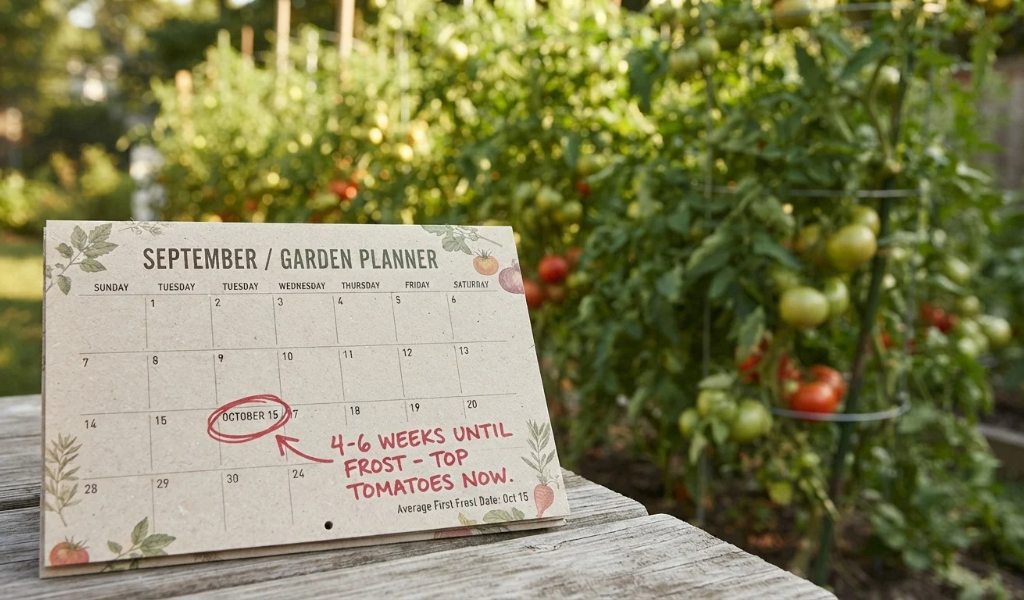 SEPTEMBER / GARDEN PLANNER
SUNDAY TUESDAY TUESDAY WEDNESDAY THURSDAY FRIDAY SATURDAY
1 2 3 4 5 6
7 8 9 10 11 12 13
14 15 OCTOBER 15 17 18 19 20
4-6 WEEKS UNTIL
FROST - TOP
TOMATOES NOW.
28 29 30 24
Average First Frest Date: Oct 15